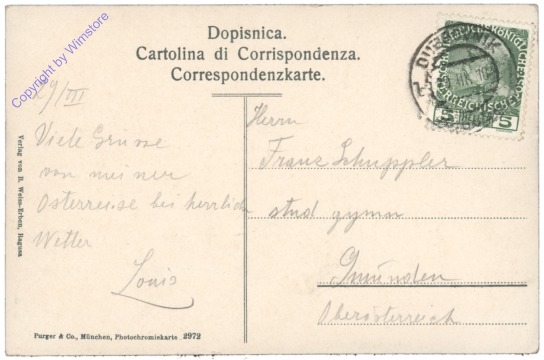 Dopisnica.
Cartolina di Corrispondenza.
Correspondenzkarte.
Copyright by Wimstore
29/III
Viele Grüsse
von meiner
Osterreise bei herrlich
Wetter
Louis
Herrn
Franz Schuppler
stud gymn
Gmünden
Oberösterreich
5 5
Verlag von B. Weiss-Erben, Ragusa
Purger & Co., München, Photochromiekarte 2972